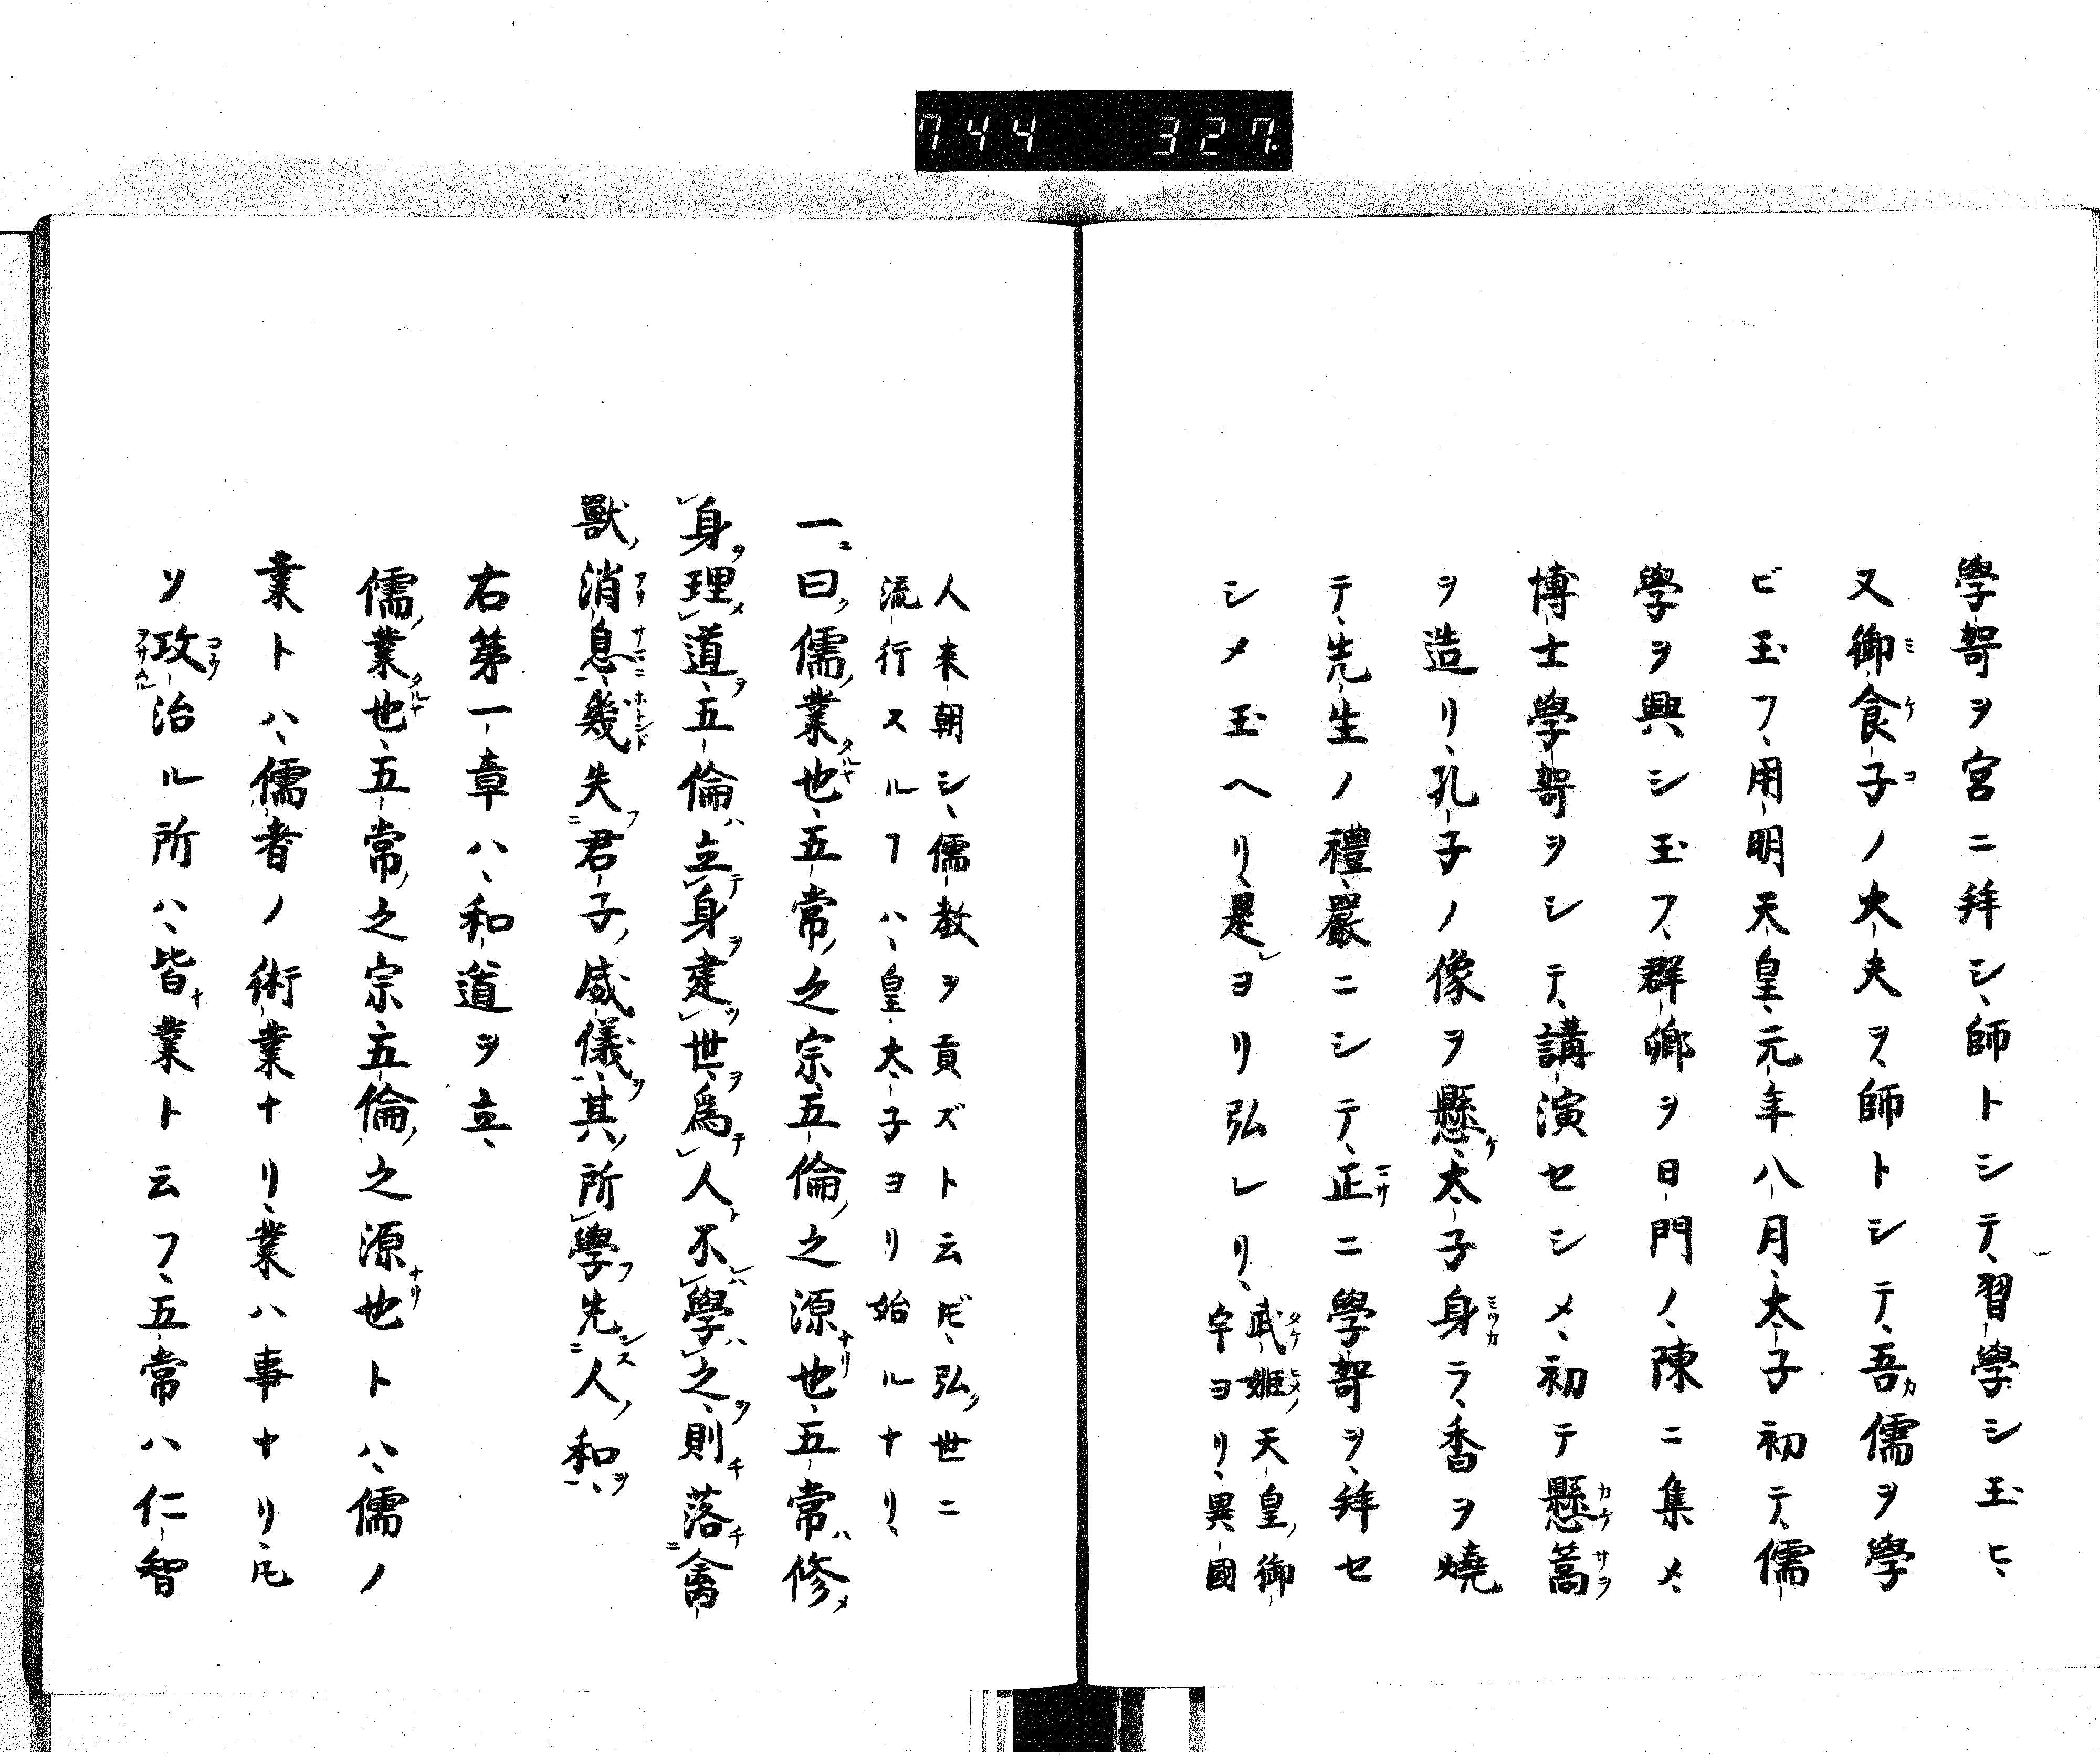 744 327.
學哿ヲ宮ニ拜シ、師トシテ、習學シ玉ヒ、
又御食子ノ大夫ヲ、師トシテ、吾儒ヲ學
ビ玉フ、用明天皇、元年八月、太子初テ、儒
學ヲ興シ玉フ、群卿ヲ日門ノ、陳ニ集メ、
博士學哿ヲシテ、講演セシメ、初テ懸蒿
ヲ造リ、孔子ノ像ヲ懸、太子身ラ、香ヲ燒
テ、先生ノ禮、嚴ニシテ、正ニ學哿ヲ、拜セ
シメ玉ヘリ、是ヨリ弘レリ、
武姫天皇ノ御
宇ヨリ、異國
人来朝シ、儒教ヲ貢ズト云𪜈、弘世ニ
流行スルヿハ、皇太子ヨリ始ルナリ、
一曰、儒業也、五常之宗、五倫之源也、五常修
身理道、五倫立身建世、爲人不學之、則落禽
獸、消息、幾失君子威儀、其所學先人和、
右第一章ハ、和道ヲ立、
儒業也、五常之宗、五倫之源也トハ、儒ノ
業トハ、儒者ノ術業ナリ、業ハ事ナリ、凡
ソ政治ル所ハ、皆業ト云フ、五常ハ仁智